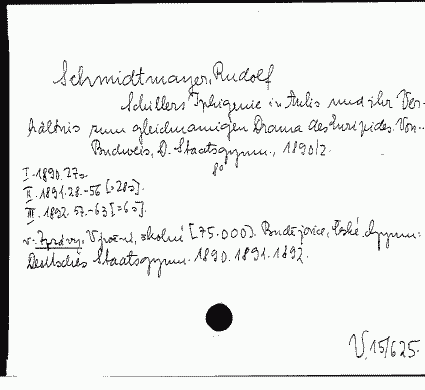 Schmidtmayer, Rudolf
Schillers Iphigenie in Aulis und ihr Ver-
hältnis zum gleichnamigen Drama des Euripides. Von-
Budweis, D. Staatsgymn., 1890/2.
8o
I. 1890. 27s.
II. 1891. 28.-56 [=28s].
III. 1892. 57.-63 [=6s].
v. Zprávy, Výroční, školní [75.000]. Budějovice, České, gymn:
Deutsches Staatsgymn. 1890. 1891. 1892.
V.15/625.